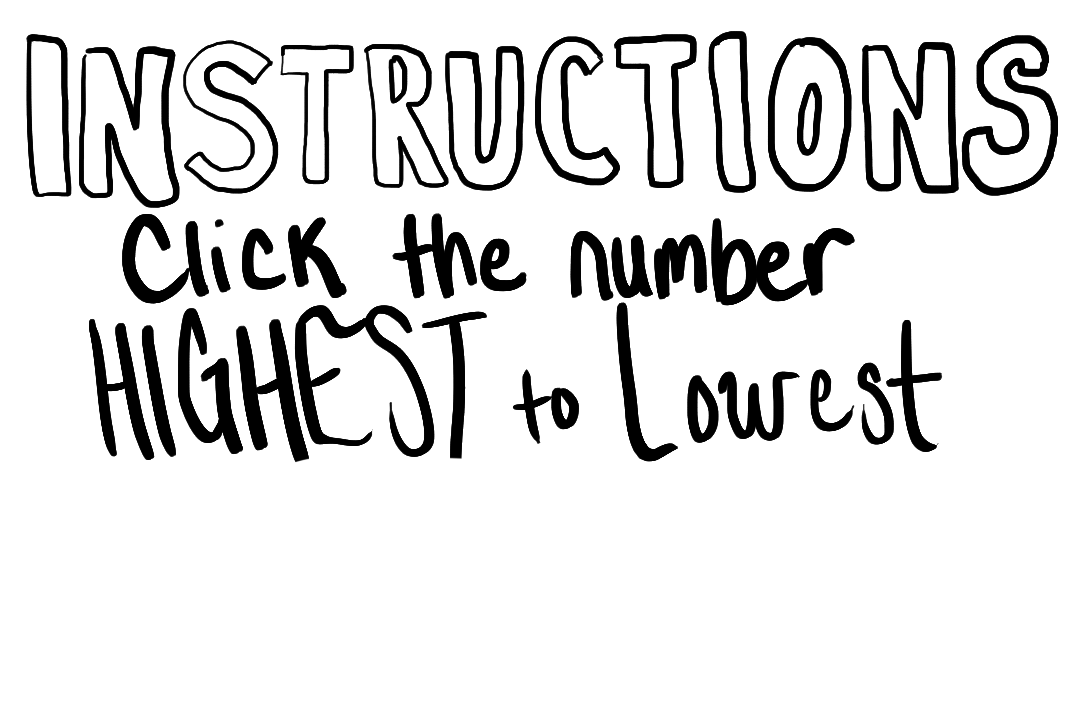 INSTRUCTIONS
Click the number
HIGHEST to Lowest